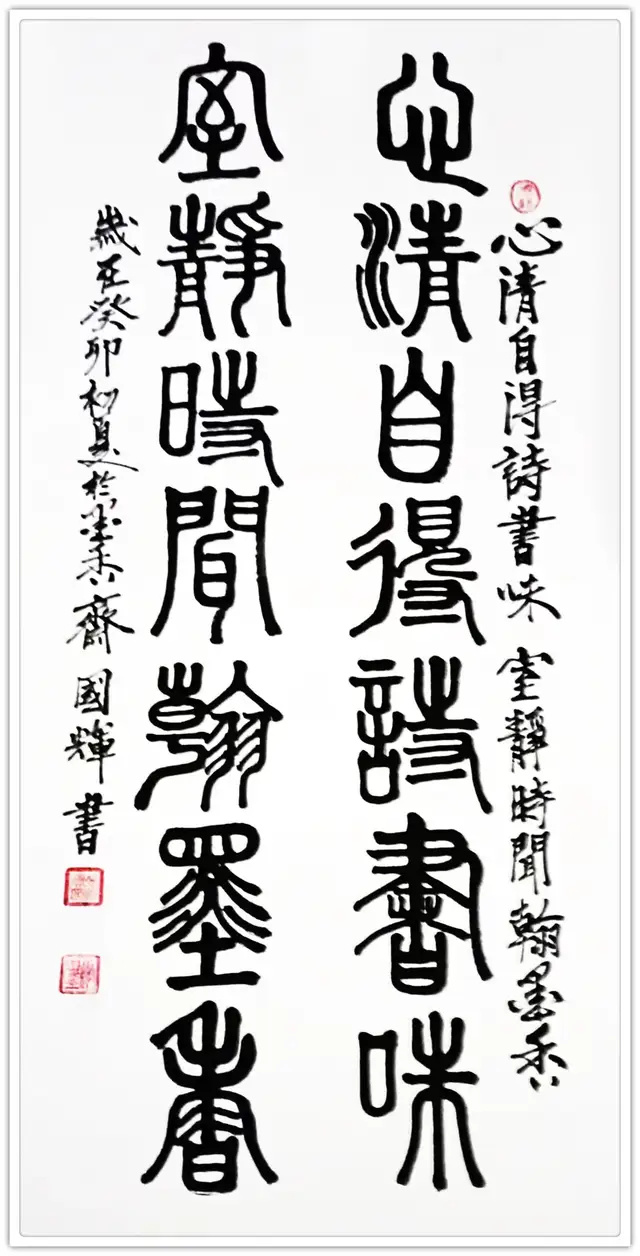 心清自得詩書味 室靜時聞翰墨香
心清自得詩書味
室靜時聞翰墨香
歲在癸卯初夏於墨香齋國輝書